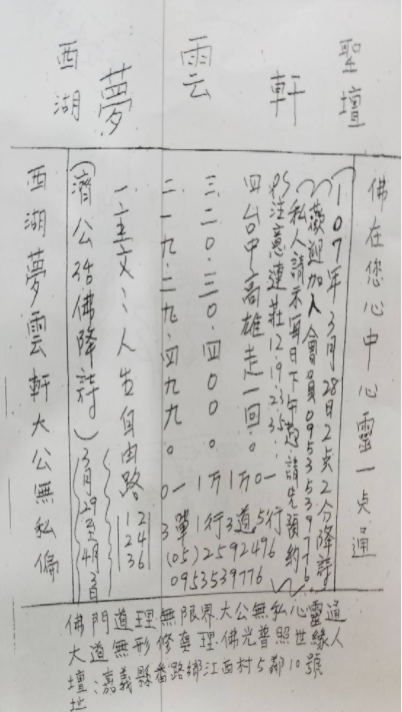 聖壇
軒
雲
夢
西湖
佛在您心中心靈一点通
107年3月28日2点2分降詩
歡迎加入會員0953539776
私人請示每日下午 請先預約
PS注意連莊12.19.23.35.
四台中高雄走一回。
三二0.三0.四00。
二一九.二九.四九九。
一主文:人生自由路
(濟公活佛降詩)(3月29至4月3日
西湖夢雲軒大公無私偏
0一行5行
1万1道3
1万1行
0一單3
12
24
36
(05)2592496
0953539776
佛門道理無限界.大公無私心靈通
大道無形修真理.佛光普照世緣人
壇址:嘉義縣番路鄉江西村5鄰10號